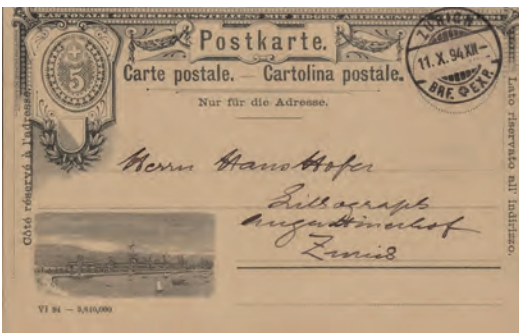 KANTONALE GEWERBEAUSSTELLUNG MIT EIDGEN. ABTEILUNGEN
Postkarte.
Carte postale. — Cartolina postale.
Nur für die Adresse.
5
11. X. 94. XII-
BRF. EXP.
Côté réservé à l'adresse.
Lato riservato all' indirizzo.
Herrn Hans Hofer
Lithograph
Augustinerhof
Zürich
VI 94 — 3,840,000